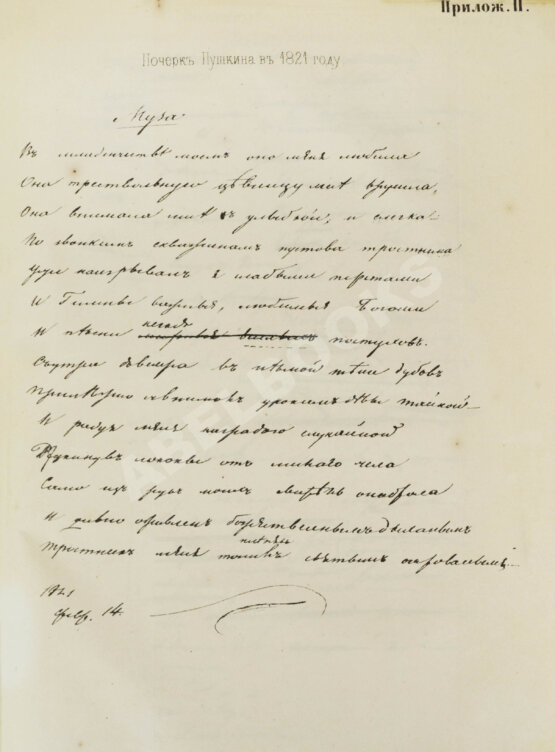 Прилож. II.
Почеркъ Пушкина въ 1821 году
Муза
Въ младенчествѣ моемъ она меня любила
Она
цѣвницу мнѣ вручила,
Она внимала мнѣ съ улыбкой; и слегка
По звонкимъ скважинамъ пустова тростника
Уже наигрывалъ я слабыми перстами
И Гимны важные, любимые Богами
И пѣсни
пастуховъ.
Съ утра до вечера въ нѣмой тѣни дубовъ
Прилѣжно я внималъ урокамъ дѣвы тайной
И радуя меня наградою случайной
Откинувъ локоны отъ милаго чела
Сама изъ рукъ моихъ свирѣль она брала
И
оживленъ божественнымъ дыханьемъ
Тростникъ меня
святымъ очарованьемъ
1821
февр. 14.
ABELBOOKS